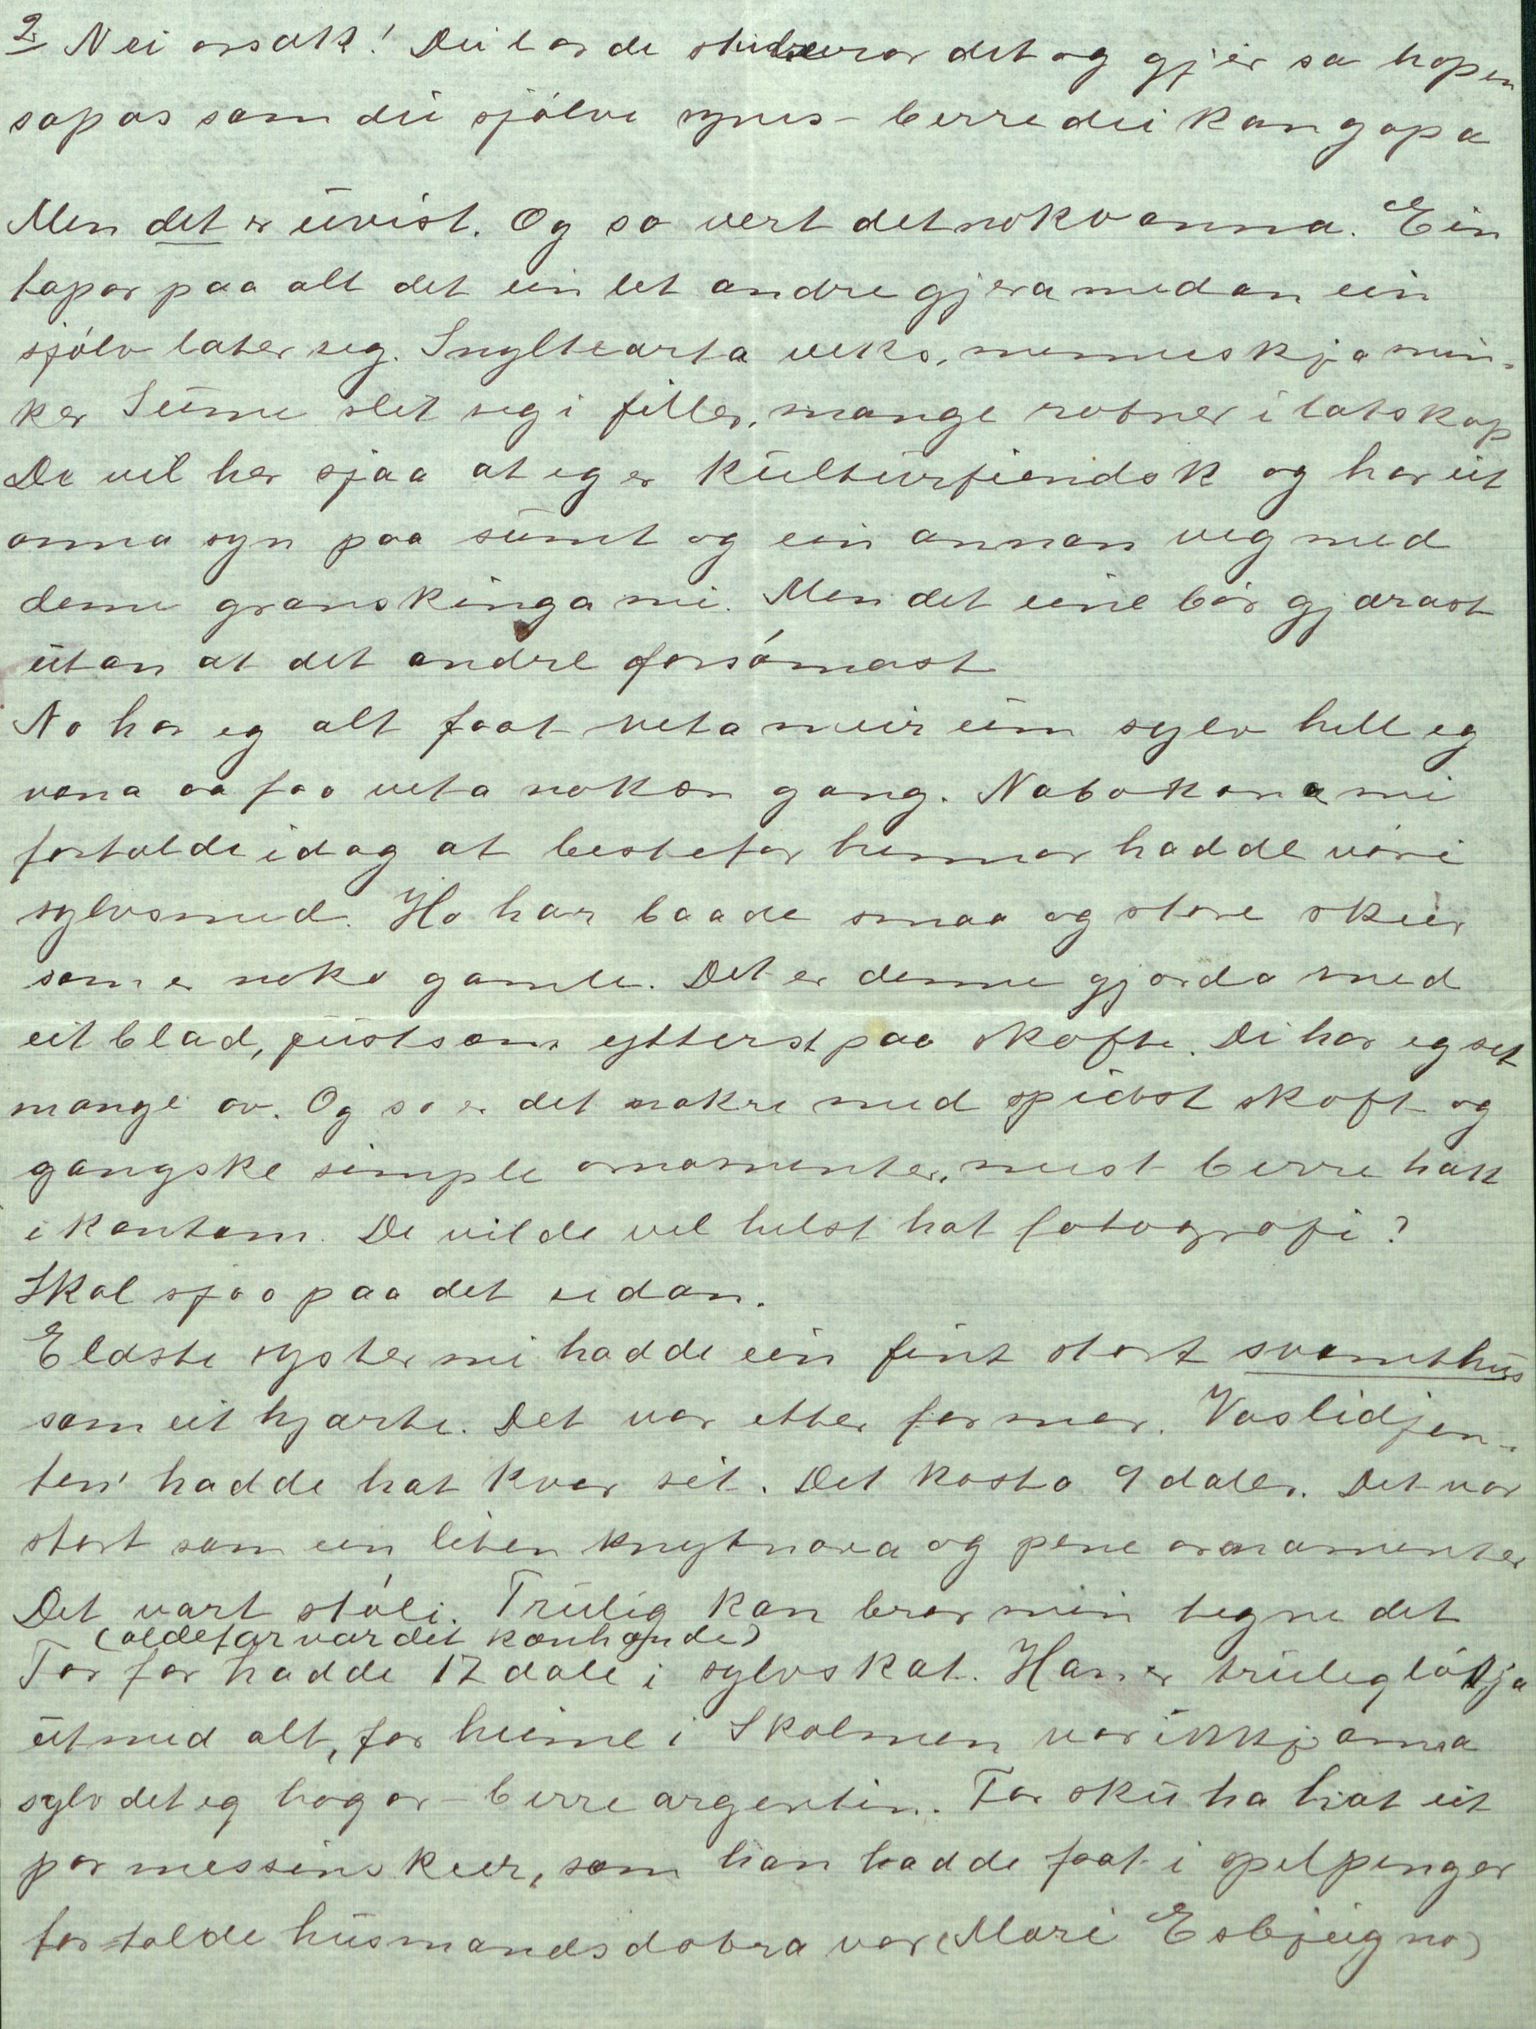 2. Nei orsak! Dei lærde studerar det og gjer sa hopen
sapas som dei sjólve synes - berre dei kan gapa
Men det er úvist. Og so vert det noko anna. Ein
tapar paa alt det ein let andre gjera medan ein
sjólv later seg. Snyltearta veks, menneskja min-
ker Súme slit seg i filler, mange rotner i latskap
De vil her sjaa at eg er kúltúrfiendsk og har eit
anna syn paa súmt og ein annan veg med
denne granskinga mi. Men det eine bör gjærast
útan at det andre forsómast
No har eg alt faat veta meir úm sylv hell eg
vona aa faa veta nokon gang. Nabokona mi
fortalde idag at bestefar hennar hadde vöri
sylvsmed. Ho har baade smaa og store skeier
som er noko gamle. Det er denne gjorda med
eit blad, júst som ytterst paa skafte. Di har eg set
mange av. Og so er det nokre med spidst skaft og
gangske simple ornamenter, mest berre hakk
i kantom. De vilde vel helst hat fotografi?
Skal sjaa paa det sidan.
Eldste syster mi hadde ein fint stort svamthús
som eit hjarte. Det var etter farmor. Vaslidjen-
ten' hadde hat kvar sit. Det kosta 9 daler. Det var
stort som ein liten knytnæva og pene ornamenter
Det vart stóli. Trúlig kan bror min tegne det
(oldefar var det kanhænde)
Far for hadde 12 dale i sylvskat. Han er trúleg lókja
út med alt, for heime i Skolmen var ikkje anna
sylv det eg hogar - berre argentin. Far skú ha hat eit
par messinskeier, som han hadde faat i spelpengar
fortalde húsmandsdotra vor (Mari Esbjúgno)